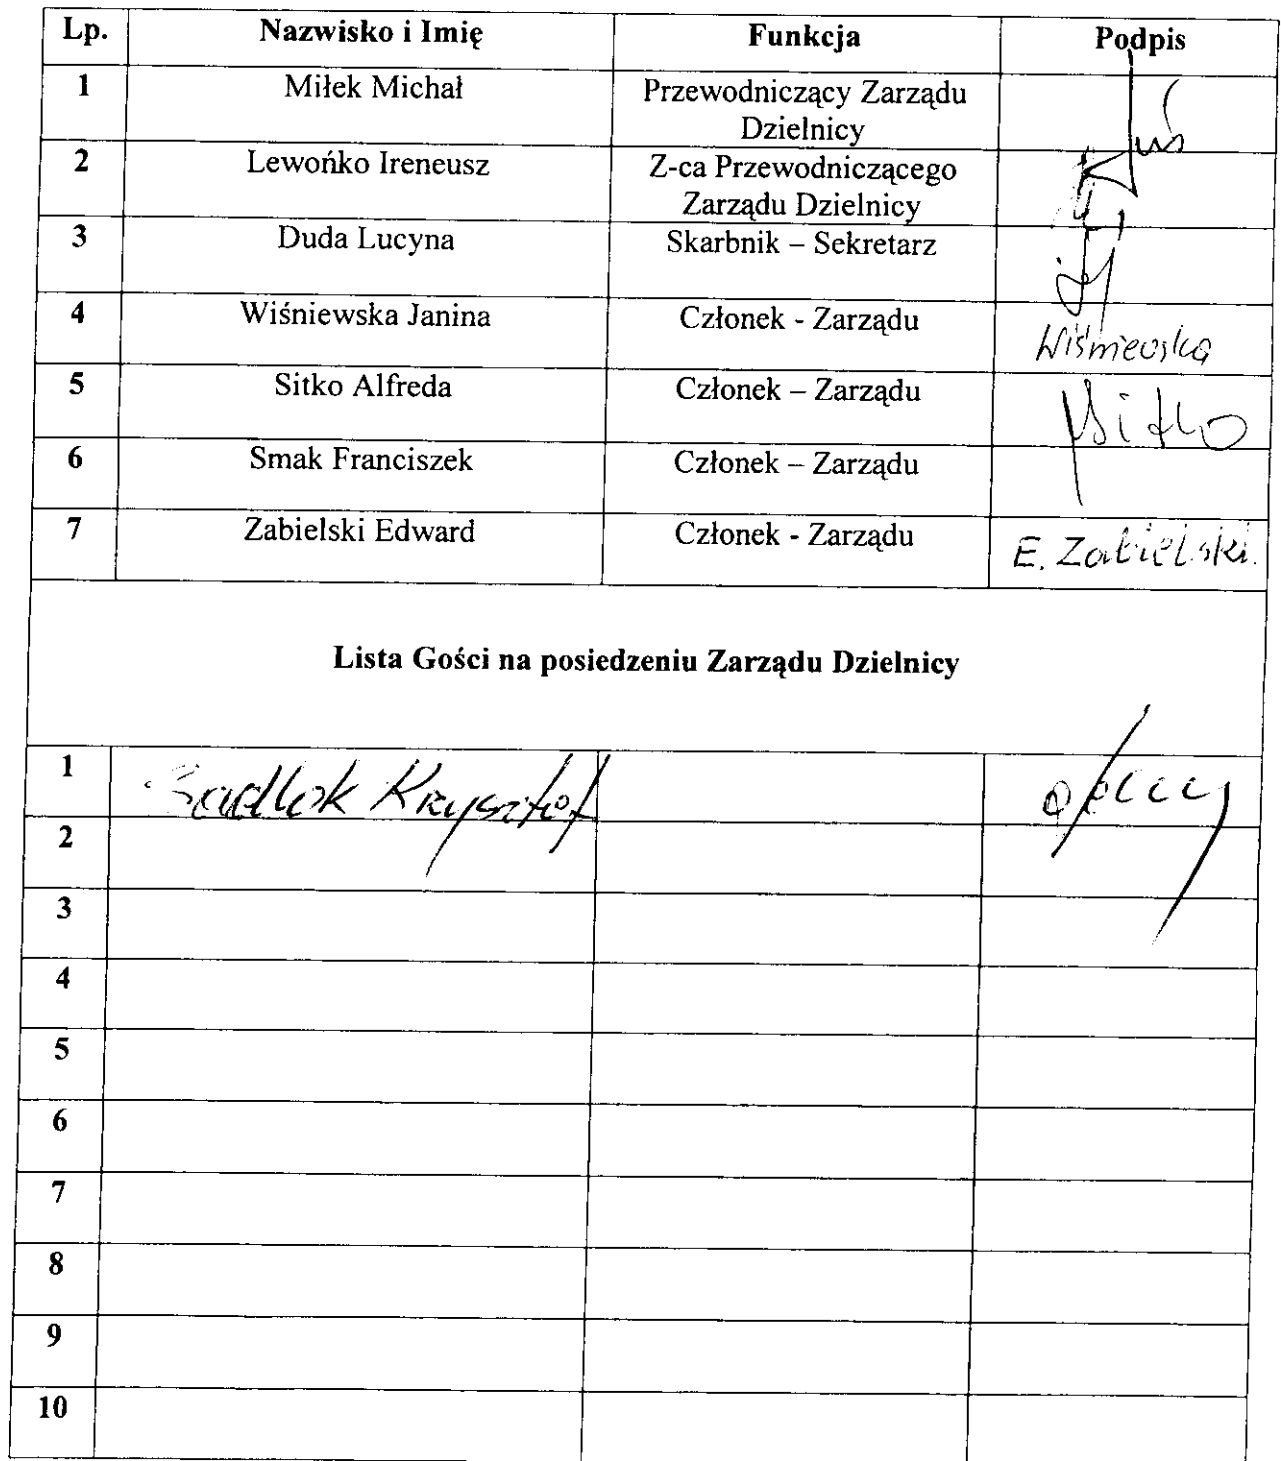 Lp. Nazwisko i Imię Funkcja Podpis
1 Miłek Michał Przewodniczący Zarządu
Dzielnicy
2 Lewońko Ireneusz Z-ca Przewodniczącego
Zarządu Dzielnicy
3 Duda Lucyna Skarbnik – Sekretarz
4 Wiśniewska Janina Członek - Zarządu Wiśniewska
5 Sitko Alfreda Członek – Zarządu Sitko
6 Smak Franciszek Członek – Zarządu
7 Zabielski Edward Członek - Zarządu E. Zabielski.
Lista Gości na posiedzeniu Zarządu Dzielnicy
1 Sadlok Krzysztof
2
3
4
5
6
7
8
9
10